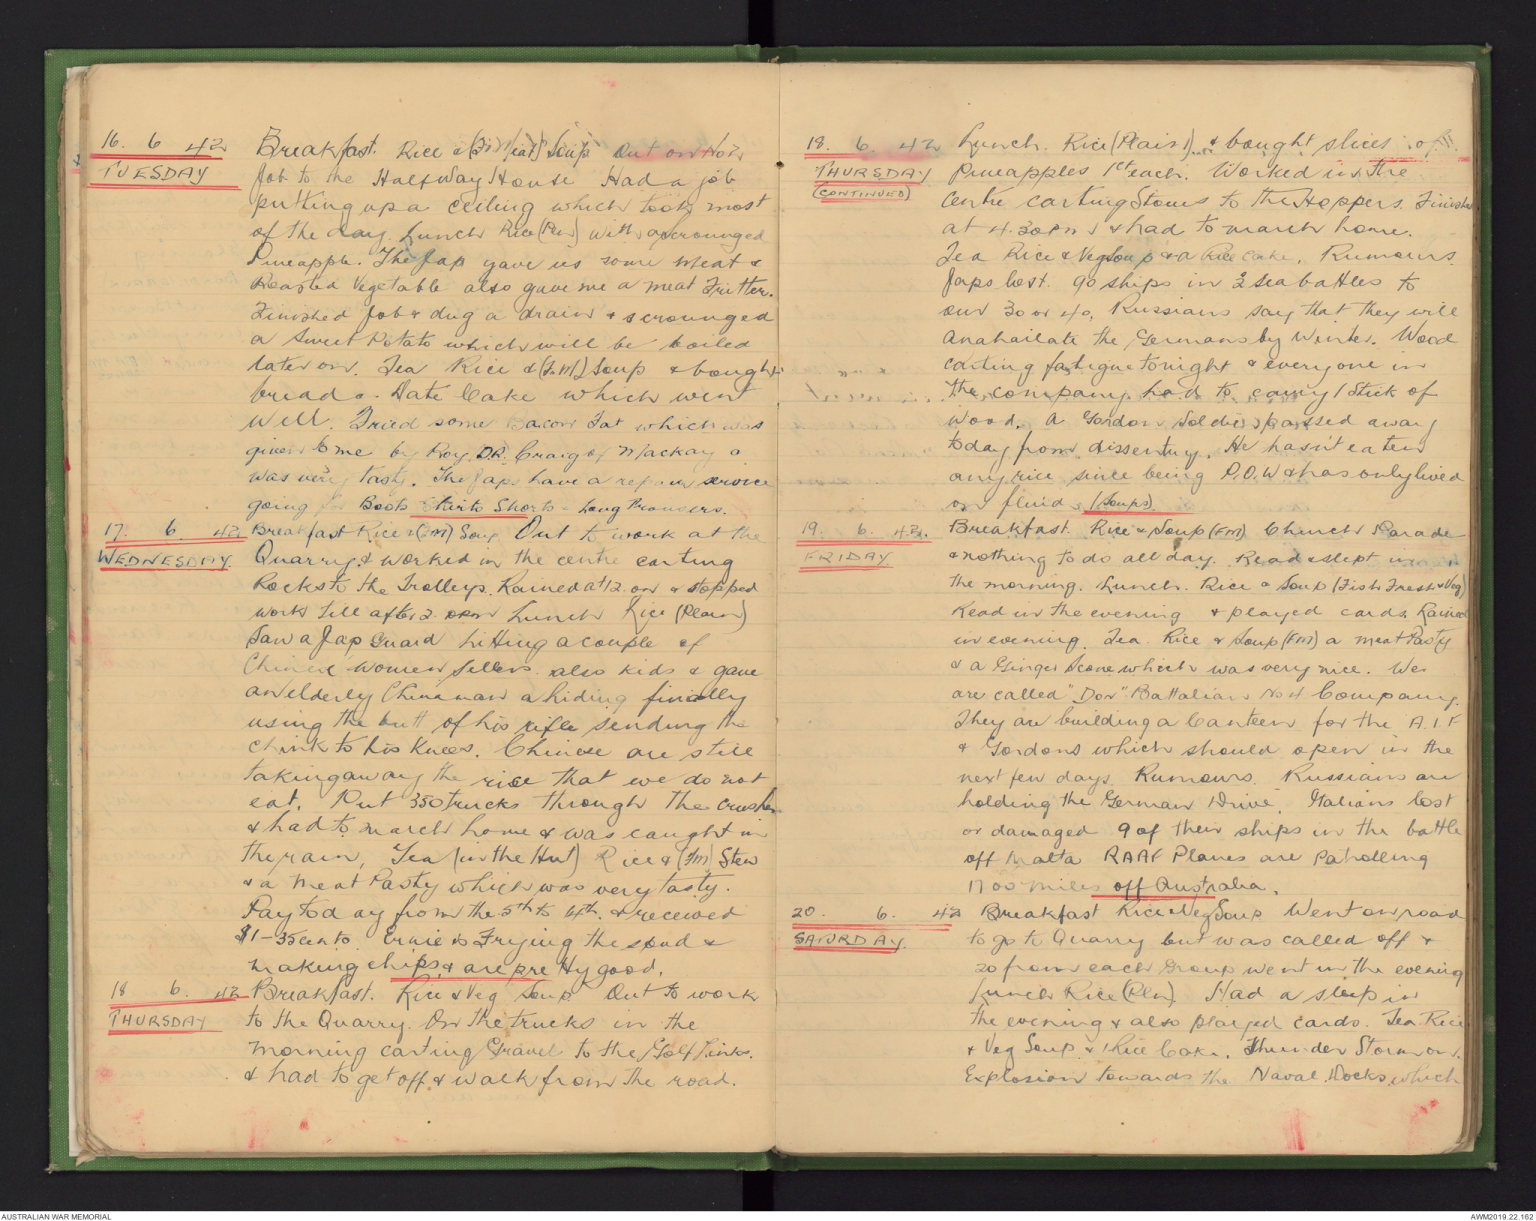 16. 6 42
TUESDAY
Breakfast. Rice & Soup Out on No 2
Job to the Halfway House Had a job
putting up a ceiling which took most
of the day Lunch Rice (Pln) with a scrounged
Pineapple. The Jap gave us some meat &
Roasted Vegetable also gave me a meat Fritter.
Finished Job & dug a drain & scrounged
a Sweet Potato which will be boiled
later on. Tea Rice & (F.M) Soup & bought
bread & Date Cake which went
well. Fried some Bacon Fat which was
given to me by Roy. DR. Craig of Mackay a
was very tasty. The Japs have a repair service
going for Boots Shirts Shorts & Long Trousers.
17. 6. 42
WEDNESDAY
Breakfast Rice & (FM) Soup Out to work at the
Quarry & worked in the centre carting
Rocks to the Trolleys. Rained at 12. on & stopped
work till after 2. Lunch Rice (Plain)
Saw a Jap Guard hitting a couple of
Chinese women sellers also kids & gave
an elderly Chinaman a hiding finially
using the butt of his rifle sending the
chink to his knees. Chinese are still
taking away the rice that we do not
eat. Put 350 trucks through the crusher
& had to march home & was caught in
the rain, Tea (in the Hut) Rice & (FM) Stew
& a Meat Pasty which was very tasty.
Pay today from the 5th to 14th. & received
$1-35 cents. Ernie is Frying the spud &
making chips & are pretty good.
18 6. 42
THURSDAY
Breakfast. Rice & Veg Soup Out to work
to the Quarry. On the trucks in the
morning carting Gravel to the Golf Links.
& had to get off & walk from the road.
18. 6. 42
THURSDAY
(CONTINUED)
Lunch. Rice (Plain) & bought slices of
Pineapples 1ct each. Worked in the
Centre carting Stones to the Hoppers. Finished
at 4.30 P.m & had to march home.
Tea Rice & Veg Soup & a Rice Cake. Rumours.
Japs lost. 90 ships in 3 sea battles to
our 30 or 40, Russians say that they will
anahailate the Germans by Winter. Wood
carting fatigue tonight & everyone in
the company had to carry 1 Stick of
wood. A Gordon Soldier passed away
today from dissentry. He hasn't eaten
any rice since being P.O.W & has only lived
on fluids (Soups).
19. 6. 42.
FRIDAY
Breakfast. Rice & Soup (FM) Church Parade
& nothing to do all day. Read & slept in
the morning. Lunch. Rice & Soup (Fish Fresh & Veg)
Read in the evening & played cards. Rained
in evening. Tea. Rice & Soup (FM) a meat Pasty
& a Ginger Scone which was very nice. We
are called "Don" Battalian No 4 Company.
They are building a Canteen for the A.I.F
& Gordons which should open in the
next few days. Rumours. Russians are
holding the German Drive. Italians lost
or damaged 9 of their ships in the battle
off Malta RAAF Planes are Patrolling
1700 miles off Australia.
20. 6. 42
SATURDAY.
Breakfast Rice & Veg Soup Went on road
to go to Quarry but was called off &
20 from each Group went in the evening
Lunch Rice (Pln). Had a sleep in
the evening & also played cards. Tea Rice
& Veg Soup & Rice Cake. Thunder Storm on.
Explosion towards the Naval Docks which
AUSTRALIAN WAR MEMORIAL
AWM2019.22.162